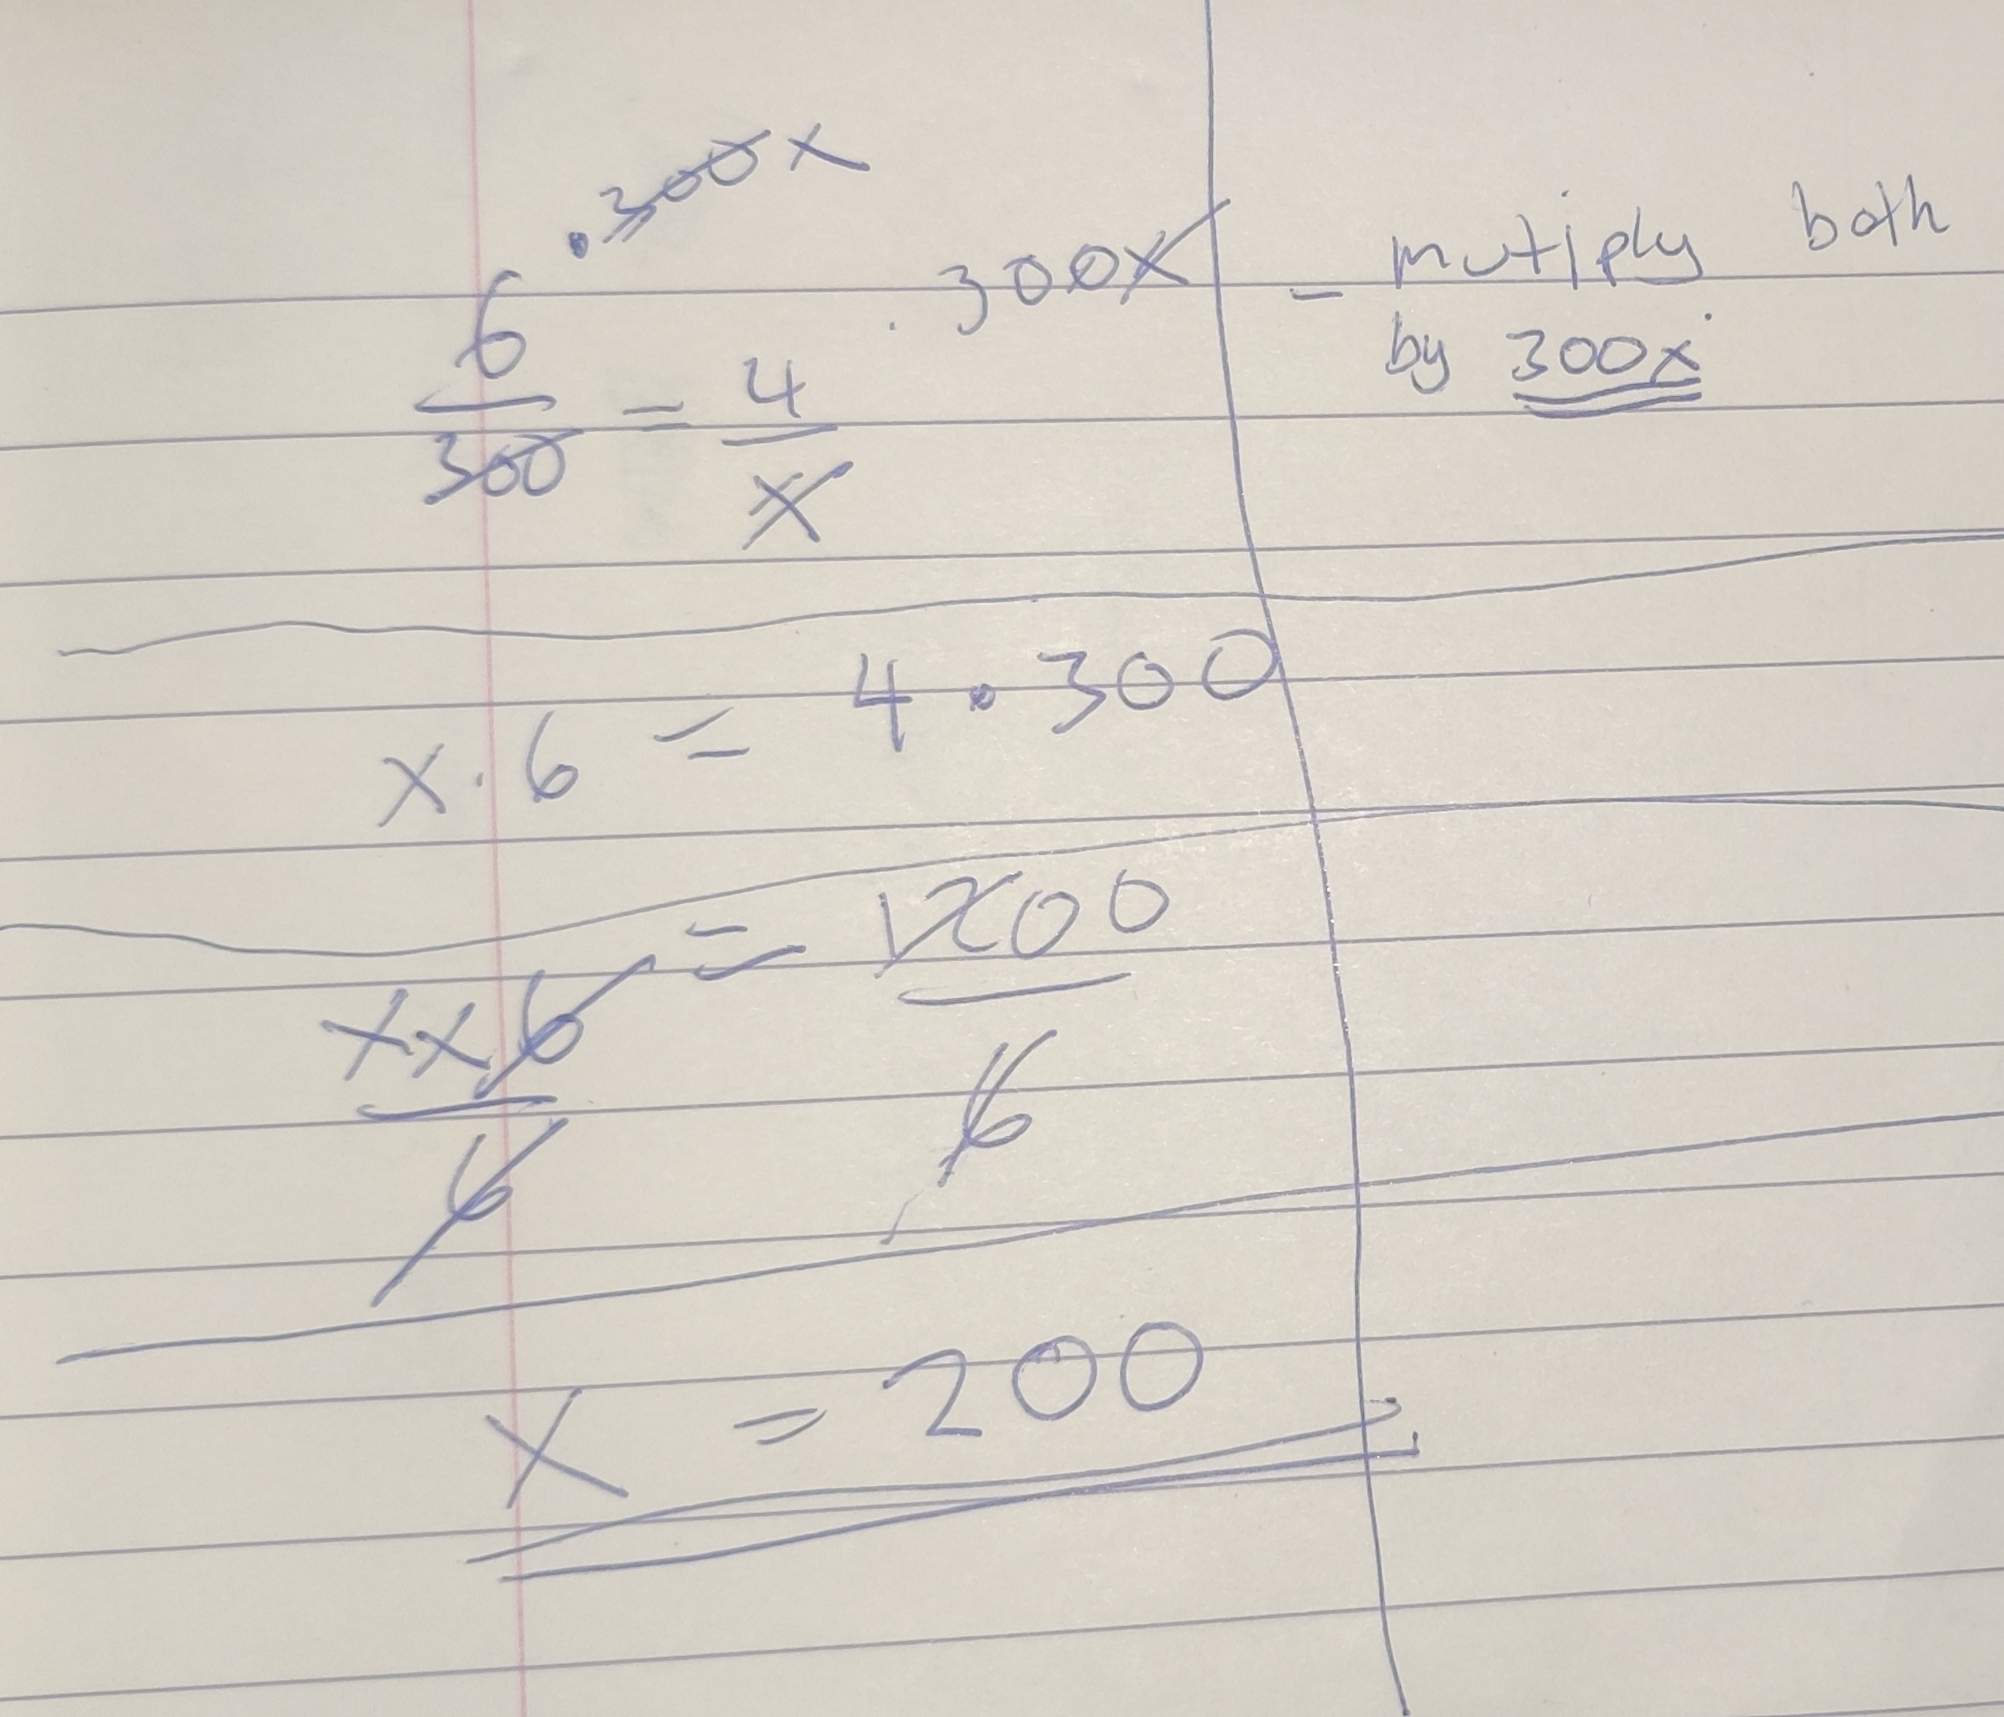 . 300x
. 300x
6/300 = 4/x
- mutiply both
by 300x
x . 6 = 4 . 300
x x 6/6 = 1200/6
x = 200